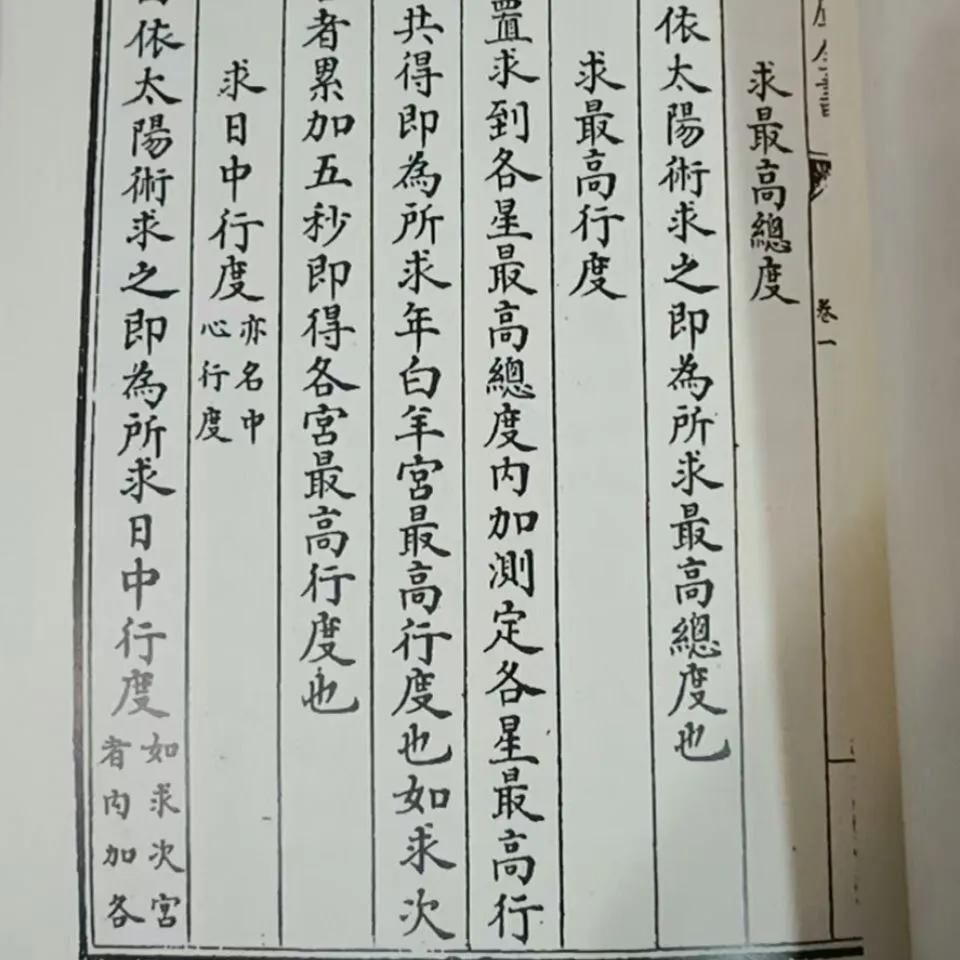 卷一
求最高總度
依太陽術求之即為所求最高總度也
求最高行度
置求到各星最高總度內加測定各星最高行
共得即為所求年白羊宮最高行度也如求次
者累加五秒即得各宮最高行度也
求日中行度亦名中心行度
依太陽術求之即為所求日中行度如求次宮者內加各